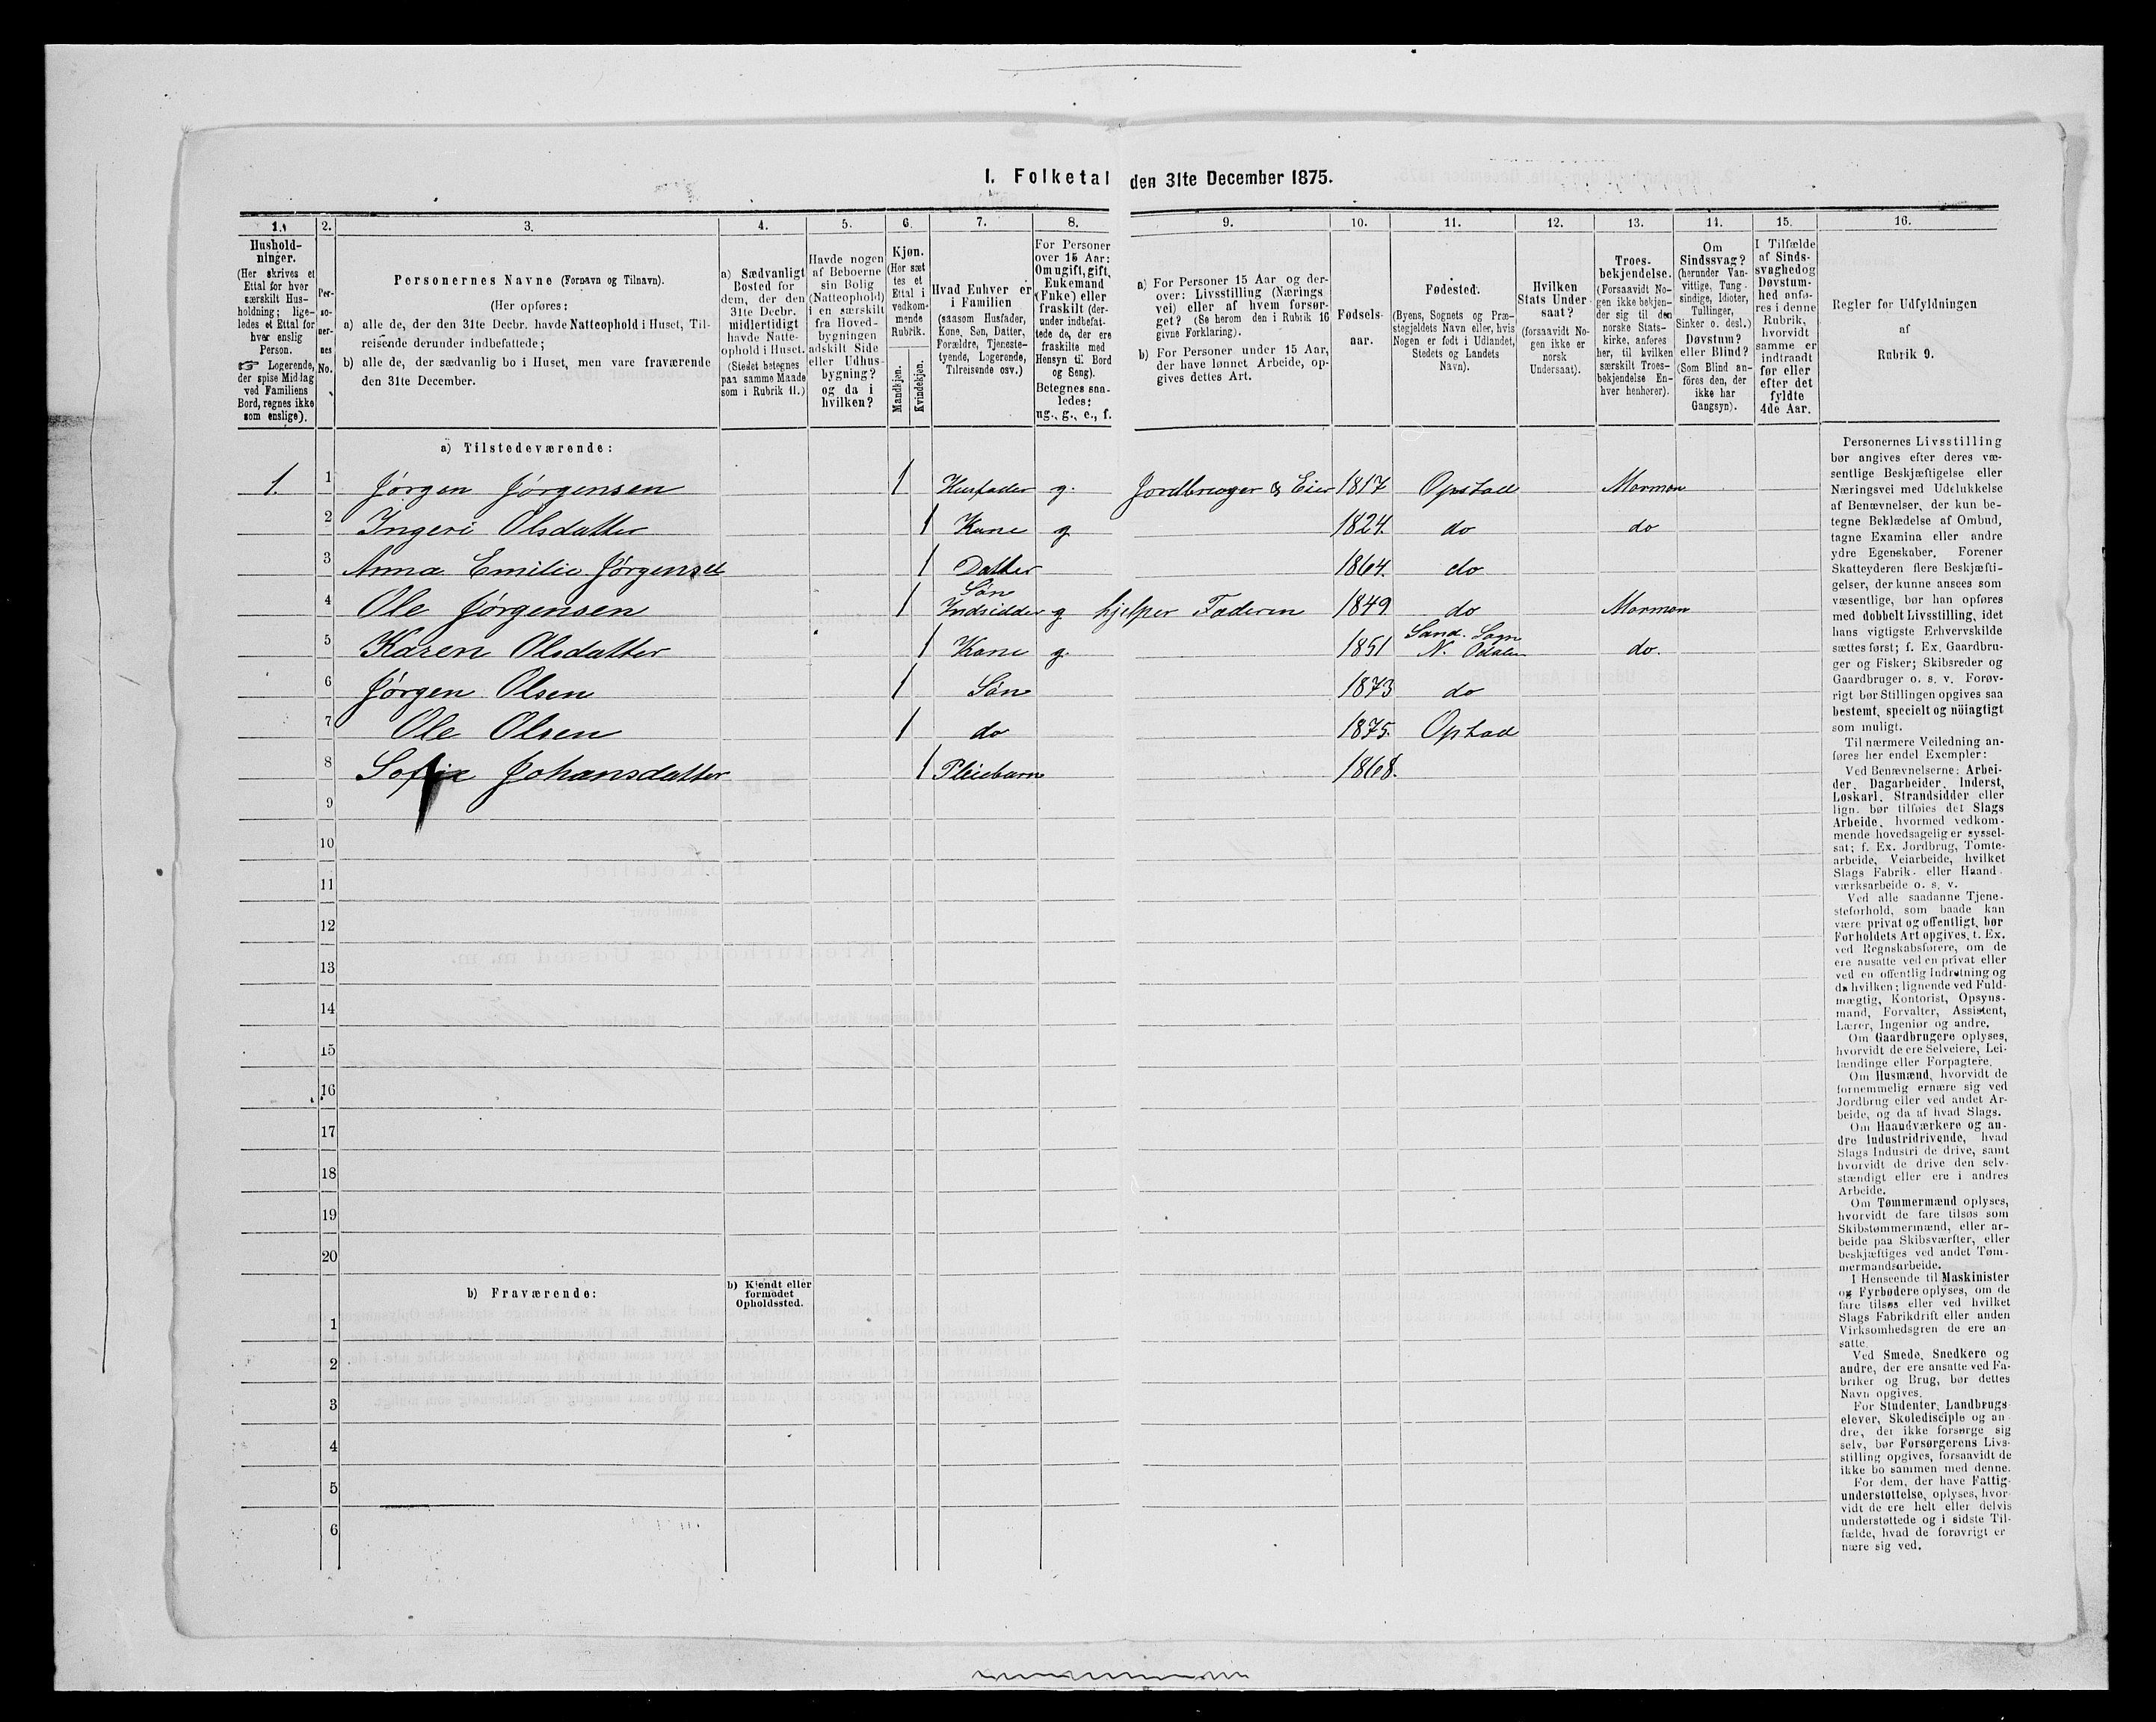 I. Folketal den 31te December 1875.
1. 2. 3. 4. 5. 6. 7. 8. 9. 10. 11. 12. 13. 14. 15. 16.
Hushold-
ninger.
(Her skrives et
Ettal for hver
særskilt Hus-
holdning; lige-
ledes et Ettal for
hver enslig
Person.
☞ Logerende,
der spise Middag
ved Familiens
Bord, regnes ikke
som enslige).
Per-
so-
ner-
nes
No.
Personernes Navne (Fornavn og Tilnavn).
(Her opføres:
a) alle de, der den 31te Decbr. havde Natteophold i Huset, Til-
reisende derunder indbefattede;
b) alle de, der sædvanlig bo i Huset, men vare fraværende
den 31te December.
a) Sædvanligt
Bosted for
dem, der den
31te Decbr.
midlertidigt
havde Natte-
ophold i Huset.
(Stedet betegnes
paa samme Maade
som i Rubrik 11.)
Havde nogen
af Beboerne
sin Bolig
(Natteophold)
i en særskilt
fra Hoved-
bygningen
adskilt Side
eller Udhus-
bygning?
og da i
hvilken?
Kjøn.
(Her sæt
tes et
Ettal i
vedkom-
mende
Rubrik.
Mandkjøn.
Kvindekjøn.
Hvad Enhver er
i Familien
(saasom Husfader,
Kone, Søn, Datter,
Forældre, Tjeneste-
tyende, Logerende,
Tilreisende osv.)
For Personer
over 15 Aar:
Om ugift, gift,
Enkemand
(Enke) eller
fraskilt (der-
under indbefat-
tede de, der ere
fraskilte med
Hensyn til Bord
og Seng).
Betegnes saa-
ledes:
ug., g., e., f.
a) For Personer 15 Aar og der-
over: Livsstilling (Nærings
vei) eller af hvem forsør-
get? (Se herom den i Rubrik 16
givne Forklaring).
b) For Personer under 15 Aar,
der have lønnet Arbeide, op-
gives dettes Art.
Fødsels-
aar.
Fødested.
(Byens, Sognets og Præ-
stegjeldets Navn eller, hvis
Nogen er født i Udlandet,
Stedets og Landets
Navn).
Hvilken
Stats Under-
saat?
(forsaavidt No-
gen ikke er
norsk
Undersaat).
Troes-
bekjendelse.
(Forsaavidt No-
gen ikke bekjen-
der sig til den
norske Stats-
kirke, anføres
her, til hvilken
særskilt Troes-
bekjendelse En-
hver henhører).
Om
Sindssvag?
(herunder Van-
vittige, Tung-
sindige, Idioter,
Tullinger,
Sinker o. desl.)
Døvstum?
eller Blind?
(Som Blind an-
føres den, der
ikke har
Gangsyn).
I Tilfælde
af Sinds-
svaghed og
Døvstum-
hed anfø-
res i denne
Rubrik,
hvorvidt
samme er
indtraadt
før eller
efter det
fyldte
4de Aar.
Regler for Udfyldningen
af
Rubrik 9.
a) Tilstedeværende:
1. 1 Jørgen Jørgensen 1 Husfader g. Jordbruger & Eier 1817 Opstad Mormon
2 Ingeri Olsdatter 1 Kone g 1824. do do
3 Anna Emilie Jørgensdt 1 Datter 1864. do
4 Ole Jørgensen 1 Søn
Indsidder g hjelper Faderen 1849 do Mormon
5 Karen Olsdatter 1 Kone g. 1851 Sand. Sogn
N. Odalen do.
6 Jørgen Olsen 1 Søn 1873 do
7 Ole Olsen 1 do 1875. Opstad
8 Sofie Johansdatter 1 Pleiebarn 1868.
9
10
11
12
13
14
15
16
17
18
19
20
b) Fraværende:
b) Kjendt eller
formodet
Opholdssted.
1
2
3
4
5
6
Personernes Livsstilling
bør angives efter deres væ-
sentlige Beskjæftigelse eller
Næringsvei med Udelukkelse
af Benævnelser, der kun be-
tegne Beklædelse af Ombud,
tagne Examina eller andre
ydre Egenskaber. Forener
Skatteyderen flere Beskjæfti-
gelser, der kunne ansees som
væsentlige, bør han opføres
med dobbelt Livsstilling, idet
hans vigtigste Erhvervskilde
sættes først; f. Ex. Gaardbru-
ger og Fisker; Skibsreder og
Gaardbruger o. s. v. Forøv-
rigt bør Stillingen opgives saa
bestemt, specielt og nöiagtigt
som muligt.
Til nærmere Veiledning an-
føres her endel Exempler:
Ved Benævnelserne: Arbei-
der, Dagarbeider, Inderst,
Løskarl, Strandsidder eller
lign. bør tilføies det Slags
Arbeide, hvormed vedkom-
mende hovedsagelig er syssel-
sat; f. Ex. Jordbrug, Tomte-
arbeide, Veiarbeide, hvilket
Slags Fabrik- eller Haand-
værksarbeide o. s. v.
Ved alle saadanne Tjene-
steforhold, som baade kan
være privat og offentligt, bør
Forholdets Art opgives, t. Ex.
ved Regnskabsførere, om de
ere ansatte ved en privat eller
ved en offentlig Indretning og
da hvilken; lignende ved Fuld-
mægtig, Kontorist, Opsyns-
mand, Forvalter, Assistent,
Lærer, Ingeniør og andre.
Om Gaardbrugere oplyses,
hvorvidt de ere Selveiere, Lei-
lændinge eller Forpagtere.
Om Husmænd, hvorvidt de
fornemmelig ernære sig ved
Jordbrug eller ved andet Ar-
beide, og da af hvad Slags.
Om Haandværkere og an-
dre Industridrivende, hvad
Slags Industri de drive, samt
hvorvidt de drive den selv-
stændigt eller ere i andres
Arbeide.
Om Tømmermænd oplyses,
hvorvidt de fare tilsøs som
Skibstømmermænd, eller ar-
beide paa Skibsværfter, eller
beskjæftiges ved andet Tøm-
mermandsarbeide.
I Henseende til Maskinister
og Fyrbødere oplyses, om de
fare tilsøs eller ved hvilket
Slags Fabrikdrift eller anden
Virksomhedsgren de ere an-
satte.
Ved Smede, Snedkere og
andre, der ere ansatte ved Fa-
briker og Brug, bør dettes
Navn opgives.
For Studenter, Landbrugs-
elever, Skoledisciple og an-
dre, der ikke forsørge sig
selv, bør Forsørgerens Livs-
stilling opgives, forsaavidt de
ikke bo sammen med denne.
For dem, der have Fattig-
understøttelse, oplyses, hvor-
vidt de ere helt eller delvis
understøttede og i sidste Til-
fælde, hvad de forøvrigt er
nære sig ved.